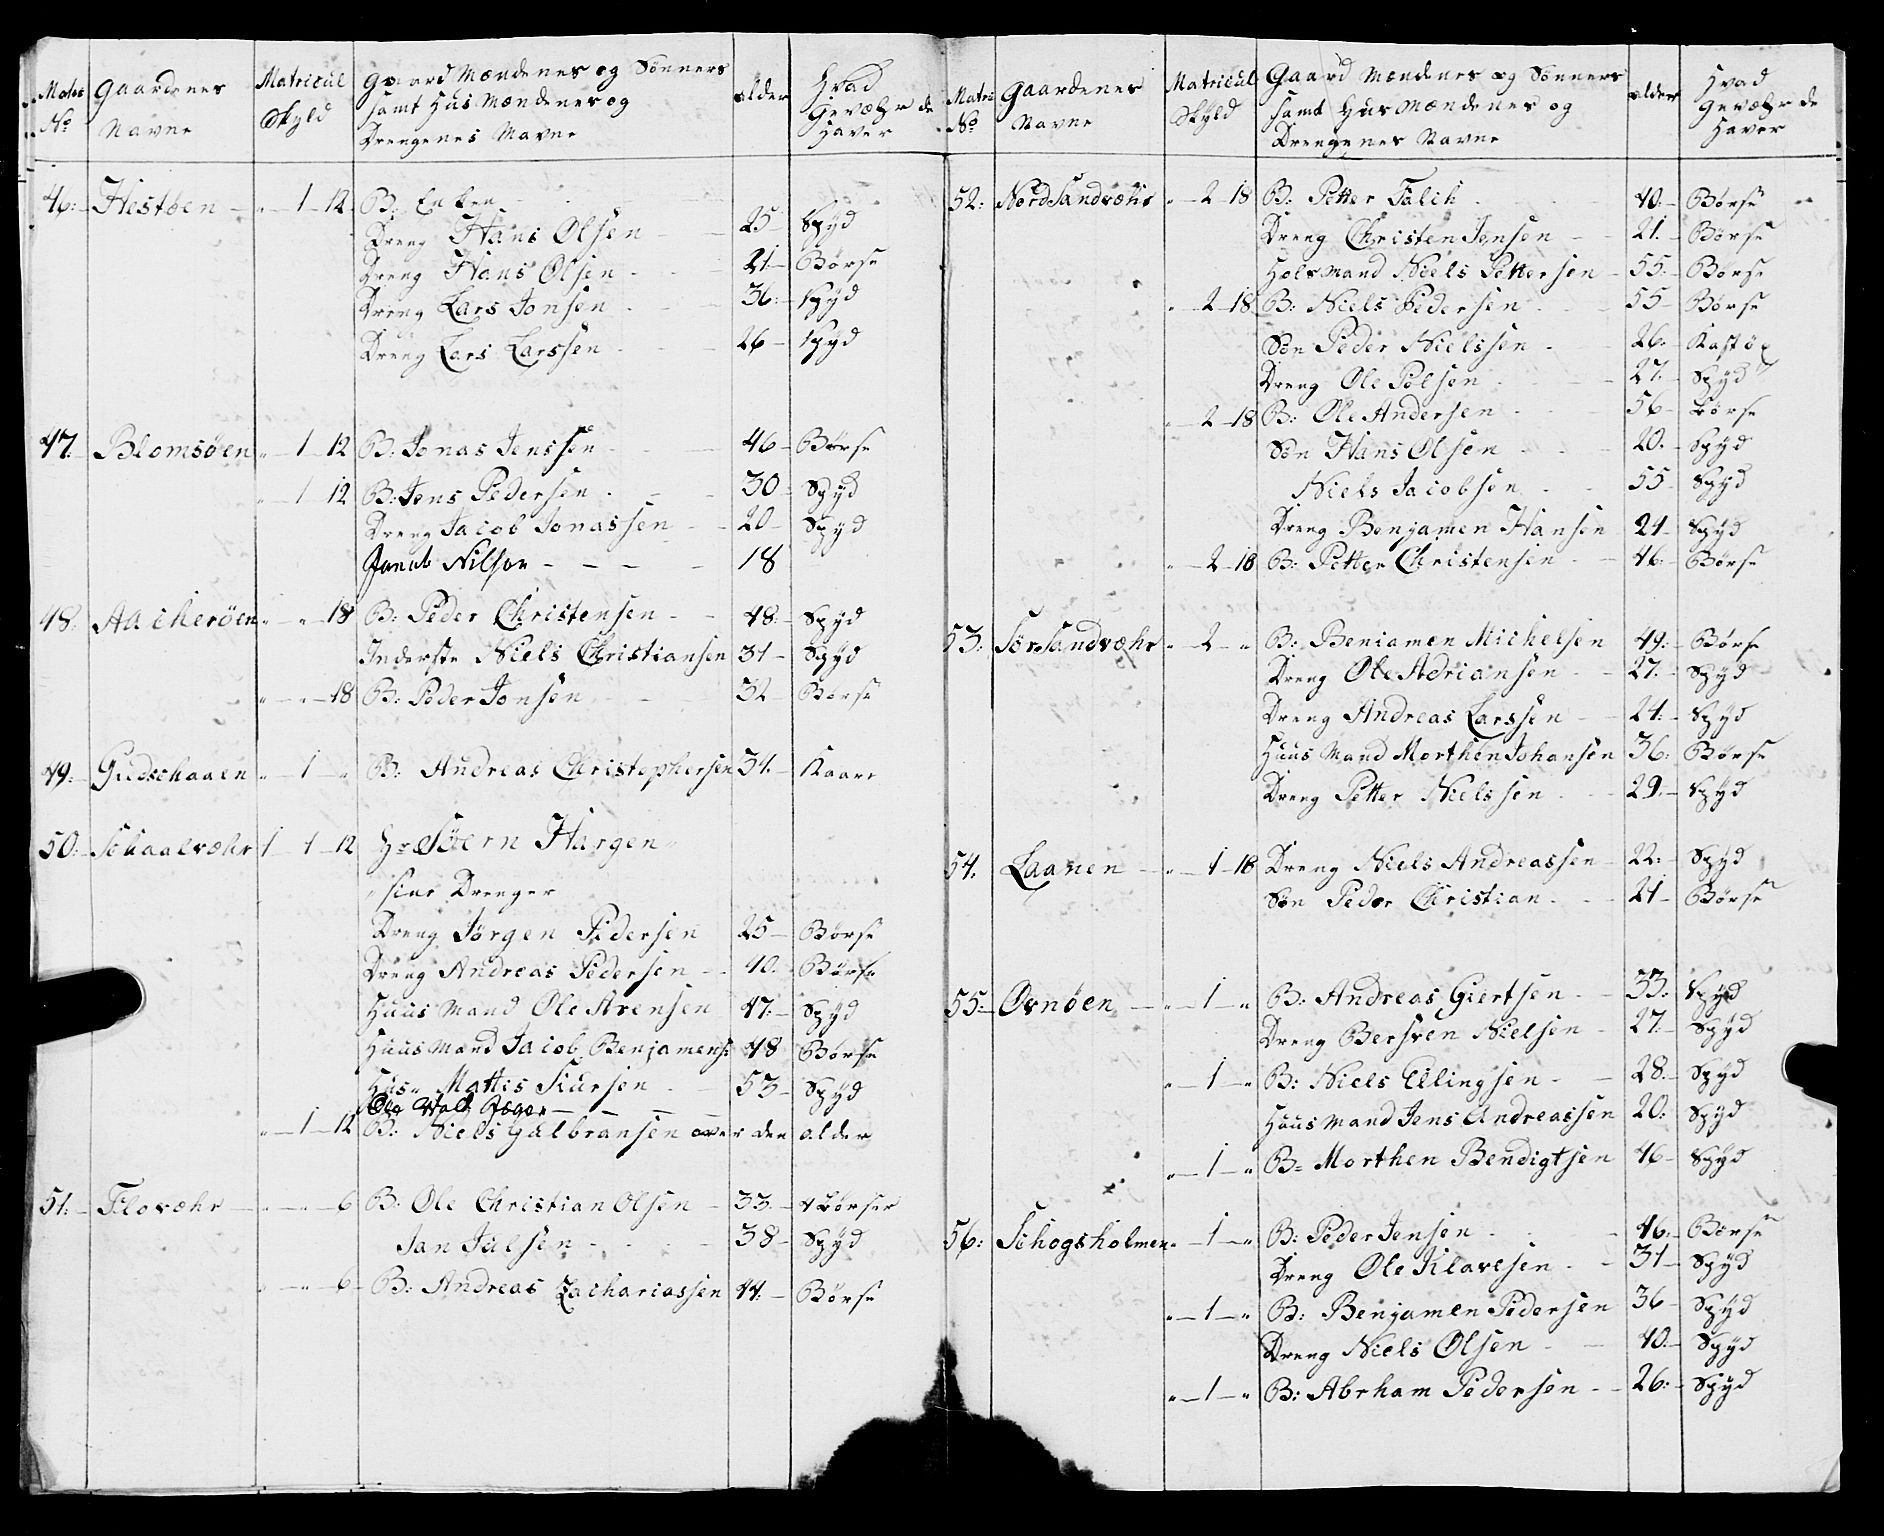 Matr: No Gaardenes Navne Matricul Skyld Gaard Mændenes og Sønners samt Huus Mændenes og Drengenes Navne alder Hvad Gevæhr de Haver
46: Hestøen " 1 12 B: Enken
Dreng Hans Olsen 25 Spyd
Dreng Hans Olsen 21 Børse
Dreng Lars Jonsen 36: Spyd
Dreng Lars Larssen 26 Spyd
47. Blomsøen " 1 12 B: Jonas Jenssen 46 Børse
" 1 12 B: Jens Pedersen 30 Spyd
Dreng Jacob Jonassen 20 Spyd
Jacob Nilsen 18
48: Aacherøen " " 18 B: Peder Christensen 48: Spyd
Inderste Niels Christiansen 31 Spyd
" " 18 B: Peder Jonsen 32 Børse
49: Gudschaaen " 1 " B: Andreas Christophersen 31. Kaare
50: Schaalvæhr 1 1 12 Hr Søern Hargen
sine Drenger
Dreng Jørgen Pedersen 25 Børse
Dreng Andreas Pedersen 40. Børse
Huus Mand Ole Arensen 47: Spyd
Huus Mand Jacob Benjamens: 48 Børse
Hus" Mattis Siursen 53 Spyd
Ole
" 1 12 B: Niels Gulbransen over den alder
51: Flovæhr " " 6 B: Ole Christian Olsen 33. 4 Børser
Jan Julsen 38 Spyd
" " 6 B: Andreas Zachariassen 44: Børse
Matri No Gaardenes Navne Matricul Skyld Gaard Mændenes og Sønners samt Huus Mændenes og Drengenes Navne alder Hvad Gevæhr de Haver
52: Nord Sandvæhr " 2 18 B: Petter Falch 40: Børse
Dreng Christen Jensen 21. Børse
Holsmand Niels Pettersen 55: Børse
" 2 18 B: Niels Pedersen 55 Børse
Søn Peder Nielssen 26: Kastøx
Dreng Ole Polsen 27. Spyd
" 2 18 B: Ole Andersen 56 Børse
Søn Hans Olsen 20. Spyd
Niels Jacobsen 55 Spyd
Dreng Benjamen Hansen 24 Spyd
" 2 18 B: Petter Christensen 46: Børse
53: Sør Sandvæhr " 2 " B: Beniamen Michelsen 49: Børse
Dreng Ole Adriansen 27. Spyd
Dreng Andreas Larssen 24: Spyd
Huus Mand Morthen Johansen 36: Børse
Dreng Petter Nielssen 29: Spyd
54. Laanen " 1 18 Dreng Niels Andreassen 22: Spyd
Søn Peder Christian 21 Børse
55: Ovnøen " 1 " B: Andreas Giertsen 33: Spyd
Dreng Bersven Nielsen 27. Spyd
" 1 " B: Niels Ellingsen 28: Spyd
Huus Mand Jens Andreassen 20: Spyd
" 1 " B= Morthen Bendigtsen 46 Spyd
56: Schogsholmen " 1 " B: Peder Jensen 46: Børse
Dreng Ole Klavesen 31 Spyd
" 1 " B: Benjamen Pedersen 36 Spyd
Dreng Niels Olsen 40: Spyd
" 1 " B: Abrham Pedersen 26: Spyd